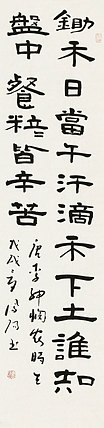 鋤禾日當午汗滴禾下土誰知
盤中餐粒〻皆辛苦
唐李紳憫農詩
戊戌